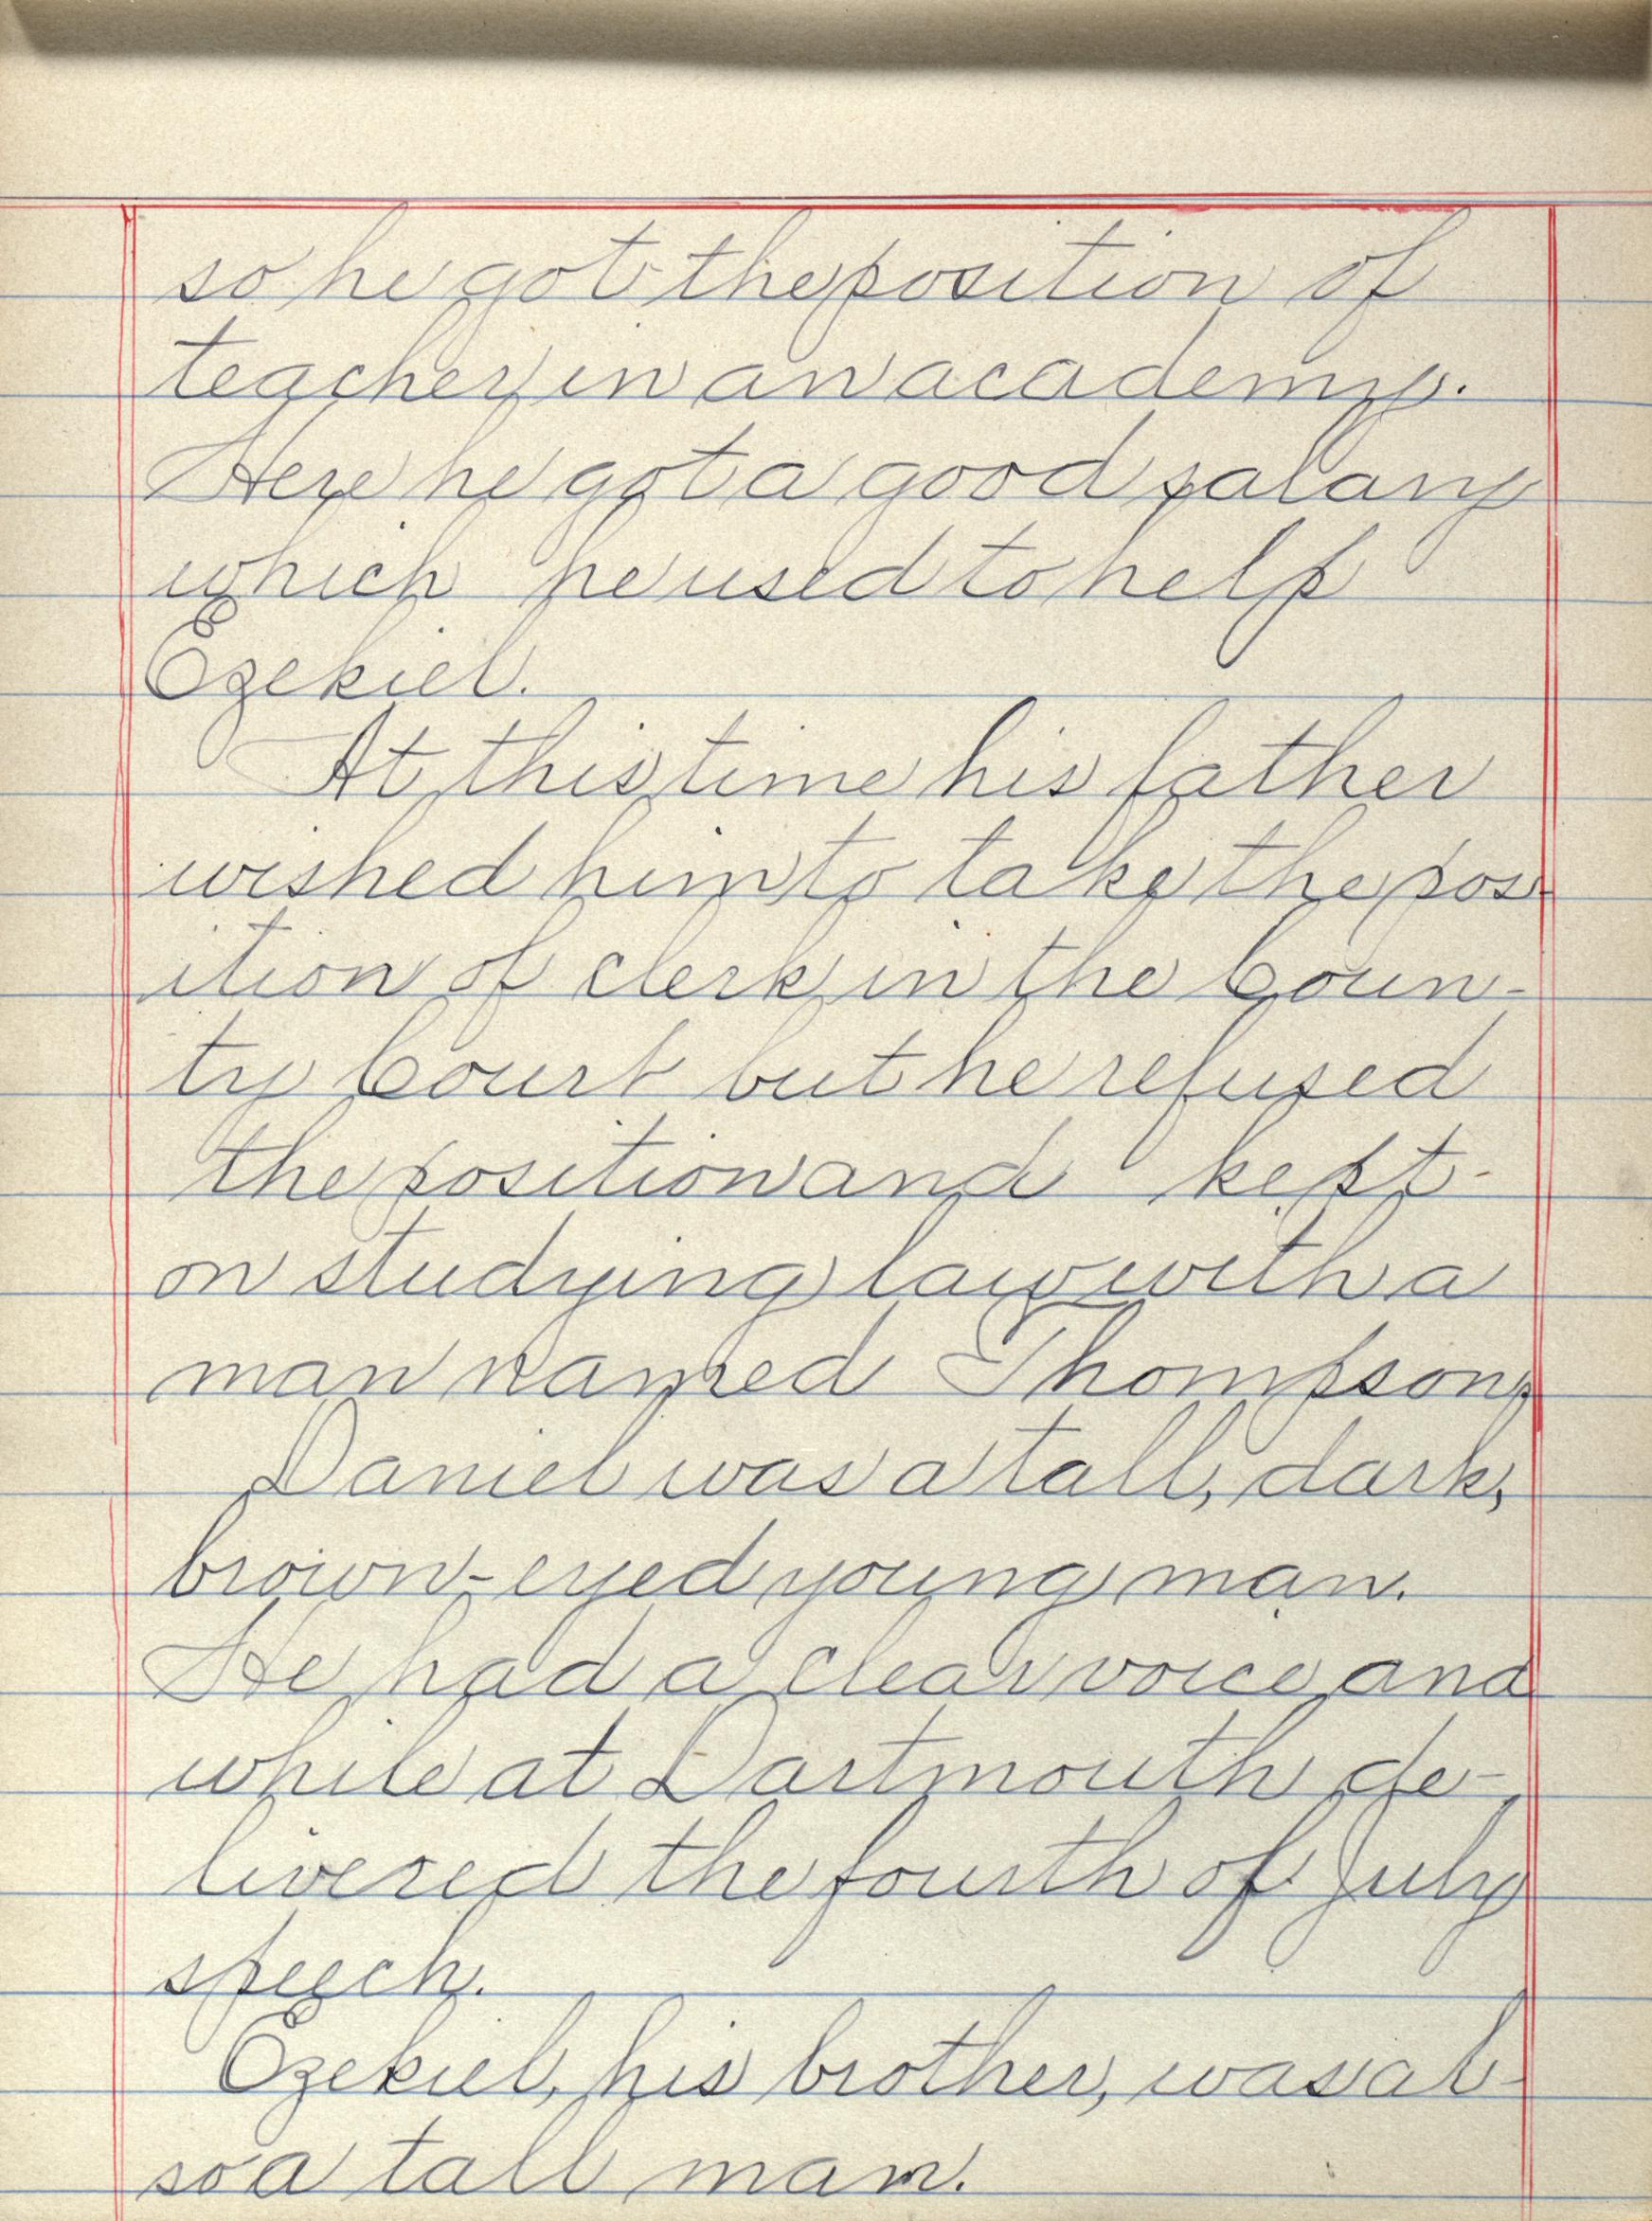 so he got the position of
teacher in an academy.
Here he got a good salary
which he used to help
Ezekiel.
At this time his father
wished him to take the pos-
ition of clerk in the Coun-
ty Court but he refused
the position and kept
on studying law with a
man named Thompson,
Daniel was a tall, dark,
brown-eyed young man.
He had a clear voice and
while at Dartmouth de-
livered the fourth of July
speech.
Ezekiel, his brother, was al-
so a tall man.